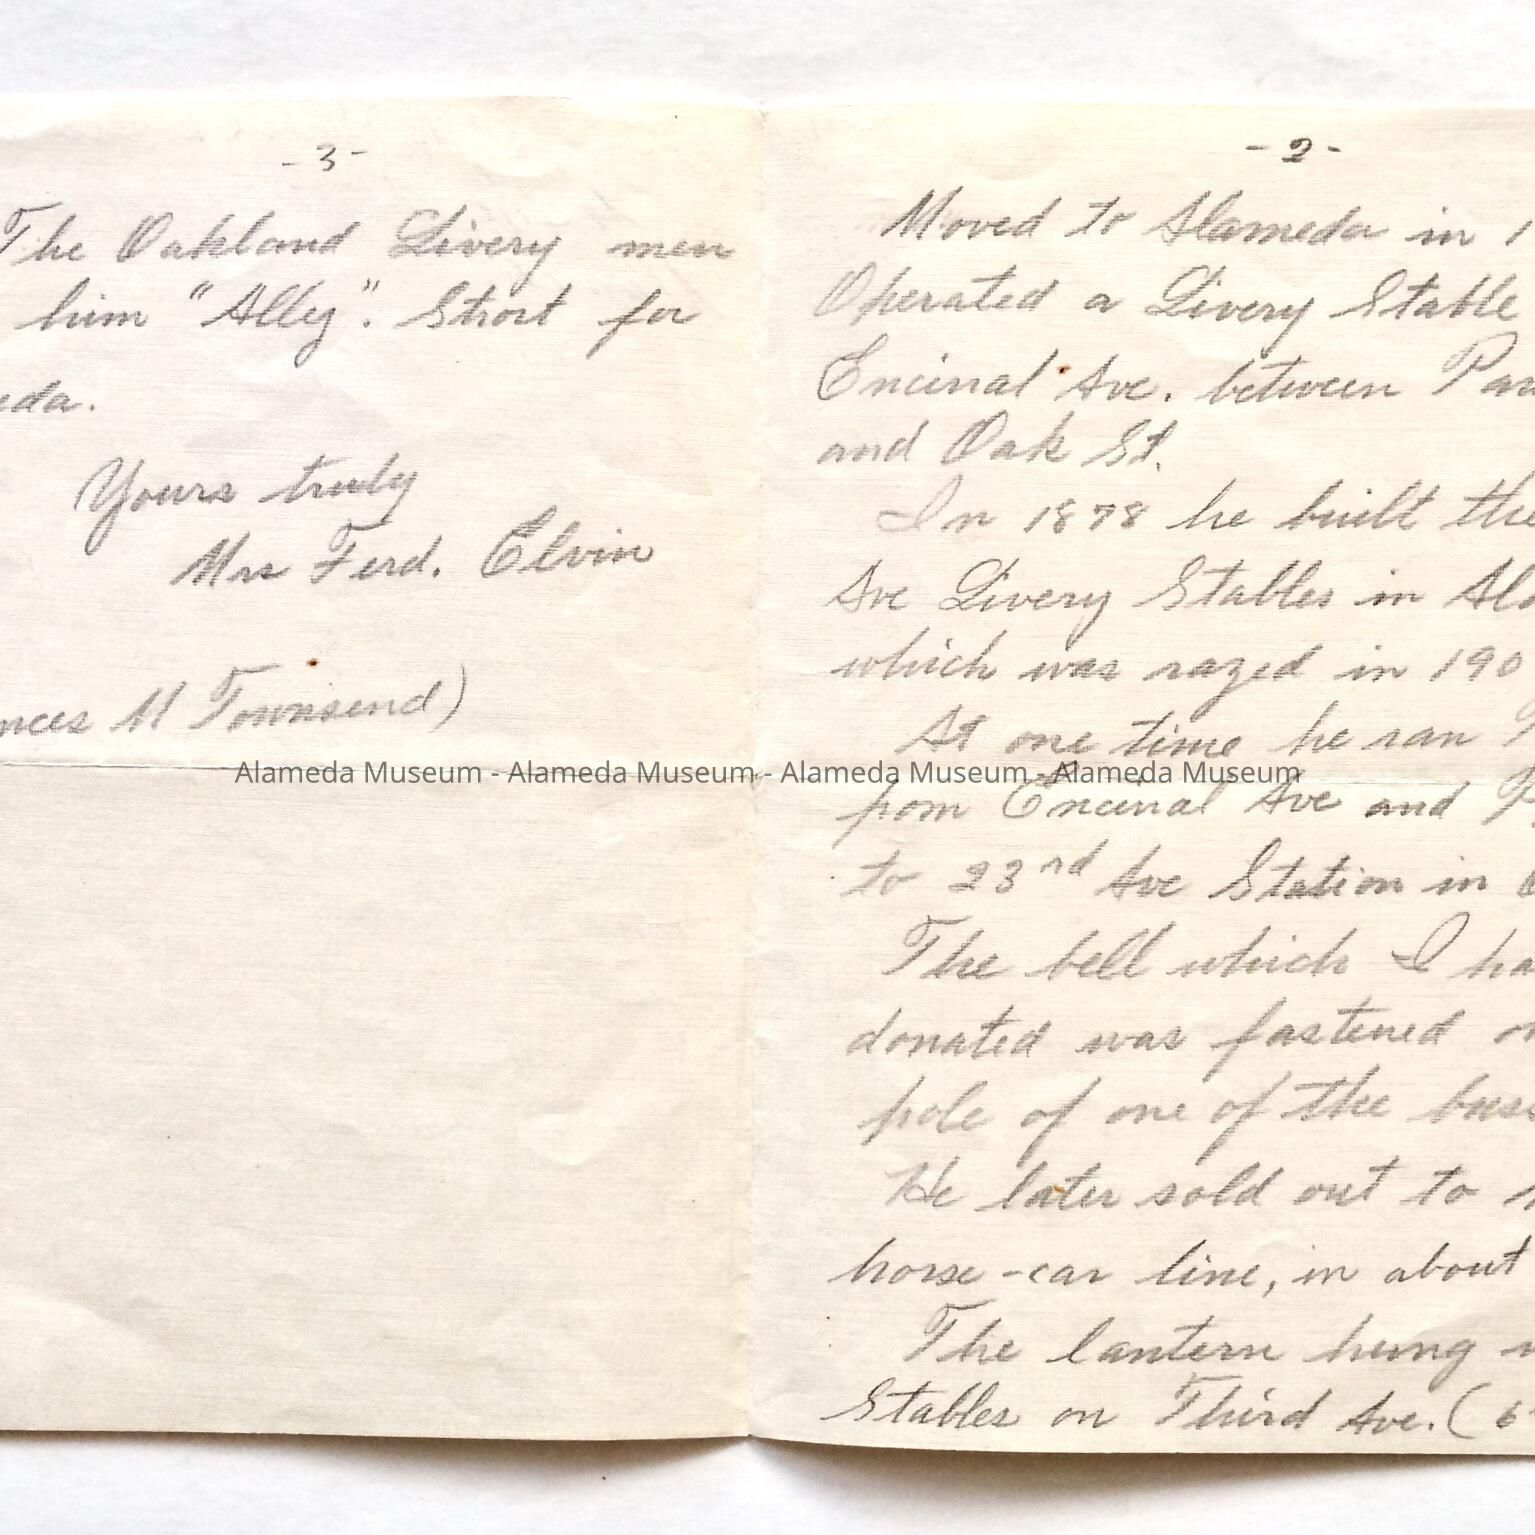 -3-
The Oakland Livery men
him "Alley". Short for
eda.
Yours truly
Mrs Ferd. Elvin
nces M Townsend)
-2-
Moved to Alameda in 1
Operated a Livery Stable
Encinal Ave. between Par
and Oak St.
In 1878 he built the
Ave Livery Stables in Ala
which was razed in 190
At one time he ran
from Encinal Ave and
to 23rd Ave Station in
The bell which I ha
donated was fastened on
pole of one of the buss
He later sold out to
horse-car line, in about
The lantern hung
Stables on Third Ave. (6
Alameda Museum - Alameda Museum - Alameda Museum - Alameda Museum